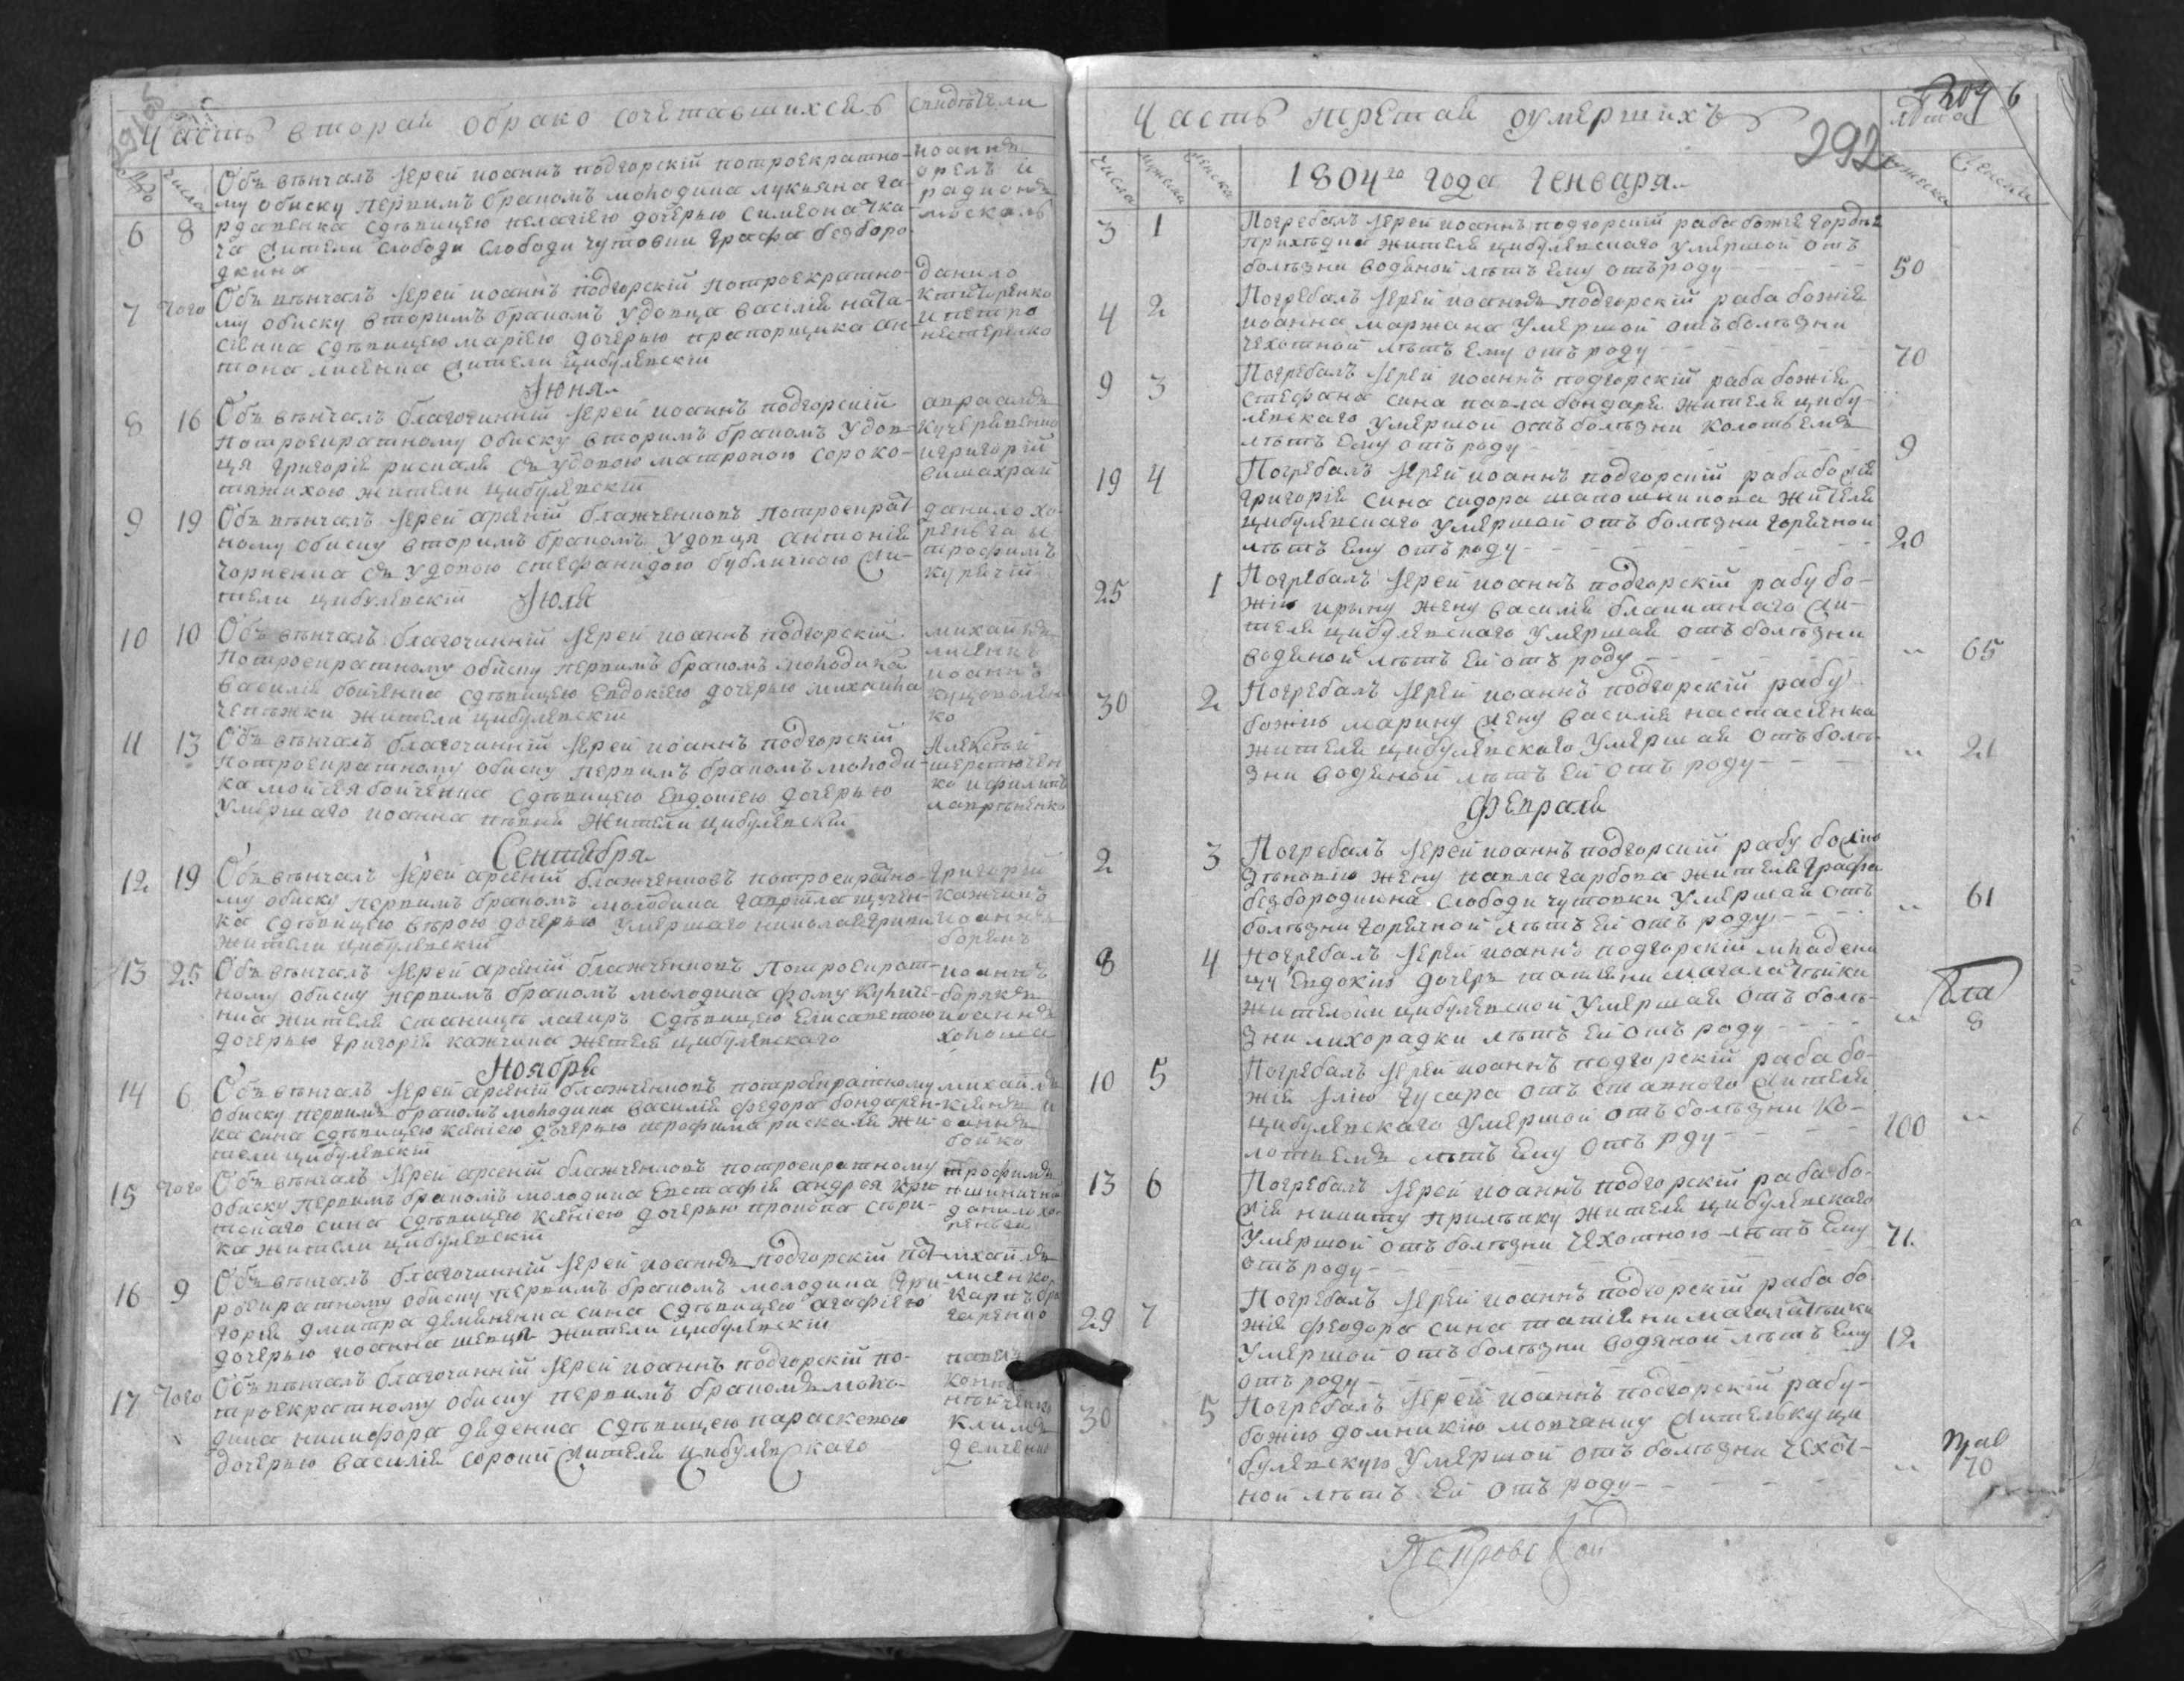 Часть вторая обрако сочетавшихся
свидѣтели
Объ вѣнчалъ Іерей иоаннъ подгорскій потроекратно-
му обиску первимъ бракомъ молодика лукьяна га-
6 8
рдавенка сдѣвицею пелагіею дочерью симеона тка-
ча жители слободи слободи чутовки Графа безборо
дкина
иоаннъ
орелъ и
радионъ
москаль
7 того Объ вѣнчалъ Іерей иоаннъ подгорскій потроекратно-
му обиску вторимъ бракомъ удовца василія
сдѣвицею маріею дочерью прапорщика ан-
тона лисенка жители Цибулевскіи
данило
и петро
нестеренко
Іюня
8 16 Объ вѣнчалъ благочинній Іерей иоаннъ подгорскій
потроекратному обиску вторимъ бракомъ удов-
ця григорія рискаля съ удовою матроною сороко-
тяжихою жители цибулевскіи
игригорій
9 19 Объ вѣнчалъ Іерей арсеній блажченковъ потроекрат
ному обиску вторимъ бракомъ удовця антонія
чорненка съ удовою стефанидою бубличкою жи-
тели цибулевскій
данило хо-
трофимъ
Іюля
10 10 Объ вѣнчалъ благочинній Іерей иоаннъ подгорскій
потроекратному обиску первимъ бракомъ молодика
василія бойченка сдѣвицею Евдокіею дочерью михаила
жители цибулевскіи
михайлъ
лисенко
иоаннъ
ко
11 13 Объ вѣнчалъ благочинній Іерей иоаннъ подгорскій
потроекратному обиску первимъ бракомъ молоди-
ка мойсея бойченка сдѣвицею Евдокіею дочерью
умершаго иоанна жители цибулевскіи
Алексѣй
ко ифилипъ
лавриненко
Сентября
12 19 Объ вѣнчалъ Іерей арсеній блажченковъ потроекратно-
му обиску первимъ бракомъ молодика гавріила
ка сдѣвицею вѣрою дочерью умершаго николая
жители цибулевскій
Григорій
кажчинъ
иоаннъ
13 25 Объ вѣнчалъ Іерей арсеній блажченковъ потроекрат-
ному обиску первимъ бракомъ молодика фому
жителя станицѣ лагиръ сдѣвицею Елисаветою
дочерью григорія кажчина жителя цибулевскаго
иоаннъ
борякъ
иоаннъ
Ноября
14 6 Объ вѣнчалъ Іерей арсеній блажченковъ потроекратному
обиску первимъ бракомъ молодика василія федора бондарен-
ка сина сдѣвицею ксеніею дочерью трофима рискаля жи-
тели цибулевскіи
михайлъ
бойко
15 того Объ вѣнчалъ Іерей арсеній блажченковъ потроекратному
обиску первимъ бракомъ молодика Евстафія андрея кри-
тскаго сина сдѣвицею ксеніею дочерью
ка жители цибулевскіи
трофимъ
16 9 Объ вѣнчалъ благочинній Іерей иоаннъ подгорскій пот
роекратному обиску первимъ бракомъ молодика гри-
горія дмитра демяненка сина сдѣвицею агафіею
дочерью иоанна шевця жители цибулевскіи
михайлъ
лисенко
карпъ
17 того Объ вѣнчалъ благочинній Іерей иоаннъ подгорскій по-
троекратному обиску первимъ бракомъ моло-
дика никифора дяденка сдѣвицею параскевою
дочерью василія сороки жителя цибулевскаго
климъ
демченко
Часть третая оумершихъ
лѣта
204 6
292
числа мужеска женска
1804го Года Генваря
мужеска женска
3 1 Погребалъ Іерей иоаннъ подгорскій раба божія гордѣя
приходка жителя цибулевскаго умершой отъ
болѣзни водяной лѣтъ Ему отъ роду 50
4 2 Погребалъ Іерей иоаннъ подгорскій раба божія
иоанна маржана умершой отъ болѣзни
чехотной лѣтъ Ему отъ роду 70
9 3 Погребалъ Іерей иоаннъ подгорскій раба божія
стефана сина павла бондаря жителя цибу-
левскаго умершой отъ болѣзни колотьемъ
лѣтъ Ему отъ роду 9
19 4 Погребалъ Іерей иоаннъ подгорскій раба божія
григорія сина сидора шапошникова жителя
цибулевскаго умершой отъ болѣзни горячной
лѣтъ Ему отъ роду 20
25 1 Погребалъ Іерей иоаннъ подгорскій рабу бо-
жію ирыну жену василія блакитнаго жи-
теля цибулевскаго умершая отъ болѣзни
водяной лѣтъ Ей отъ роду 65
30 2 Погребалъ Іерей иоаннъ подгорскій рабу
божію марину жену василія настасіенка
жителя цибулевскаго умершая отъ болѣ-
зни водяной лѣтъ Ей отъ роду 21
Февраля
2 3 Погребалъ Іерей иоаннъ подгорскій рабу божію
зѣновію жену павла гарбова жителя графа
безбородкина слободи чутовки умершая отъ
болѣзни горячной лѣтъ Ей отъ роду 61
8 4 Погребалъ Іерей иоаннъ подгорскій младени
цу Евдокію дочерь татіяни магалатѣйки
жителки цибулевской умершая отъ болѣ-
зни лихорадки лѣтъ Ей отъ роду 8
10 5 Погребалъ Іерей иоаннъ подгорскій раба бо-
жія Ілію гусара отъ ставного жителя
цибулевскаго умершой отъ болѣзни ко-
лотьемъ лѣтъ Ему отъ рду 100
13 6 Погребалъ Іерей иоаннъ подгорскій раба бо-
жія никиту прилѣпку жителя цибулевскаго
умершой отъ болѣзни чехотною лѣтъ Ему 71
отъ роду
29 7 Погребалъ Іерей иоаннъ подгорскій раба бо-
жія феодора сина татіяни магалатѣйки
умершой отъ болѣзни водяной лѣтъ Ему 12
отъ роду
30 5 Погребалъ Іерей иоаннъ подгорскій рабу
божію домникію мовчанку жительку ци
булевскую умершой отъ болѣзни чехот-
ной лѣтъ Ей отъ роду 70